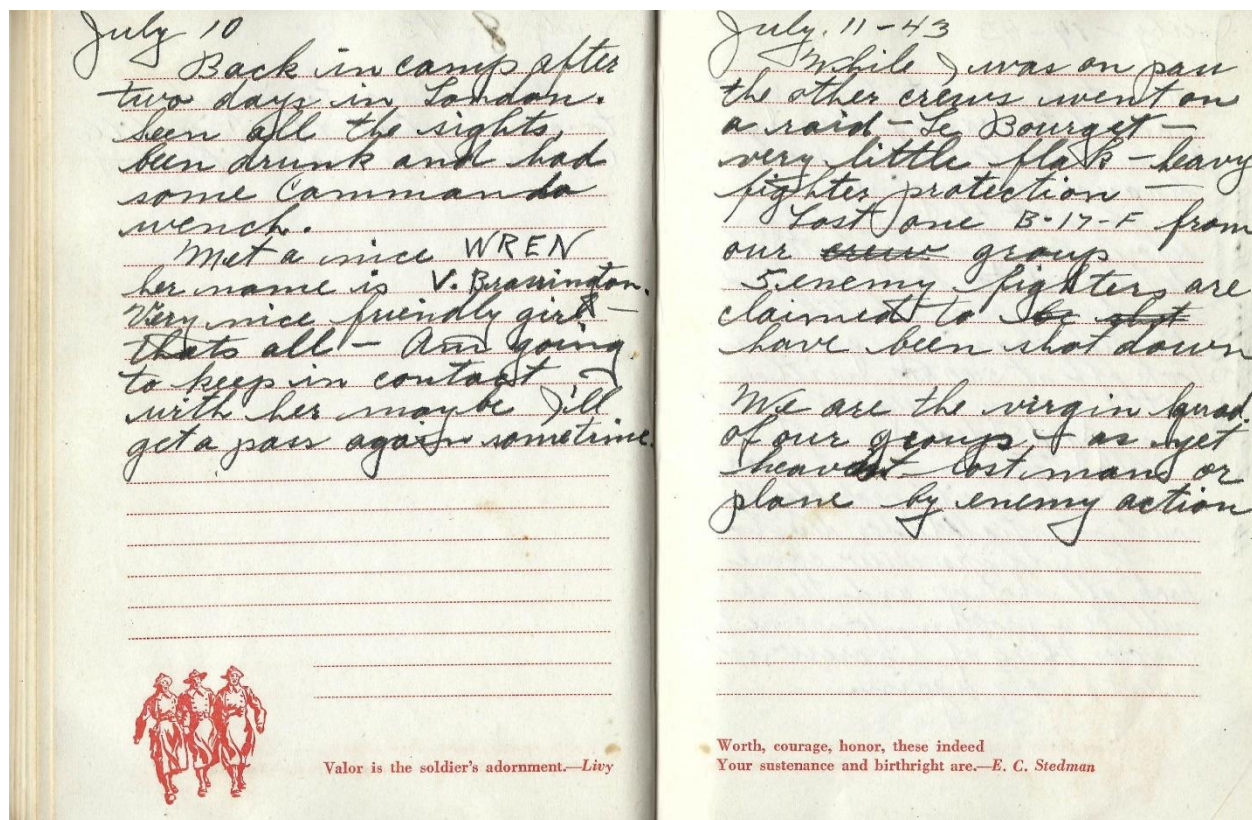 July 10
Back in camp after
two days in London.
Seen all the sights,
been drunk and had
some Commando
wench.
Met a nice WREN
her name is V. Brassington.
Very nice friendly girl –
thats all – Am going
to keep in contact
with her maybe I'll
get a pass again sometime.
Valor is the soldier's adornment.—Livy
July. 11-43
While I was on pass
the other crews went on
a raid – Le Bourget –
very little flak – heavy
fighter protection –
Lost one B-17-F from
our crew group
5 enemy fighters are
claimed to be shot
have been shot down
We are the virgin squad.
of our group – as yet
haven't lost man or
plane by enemy action
Worth, courage, honor, these indeed
Your sustenance and birthright are.—E. C. Stedman